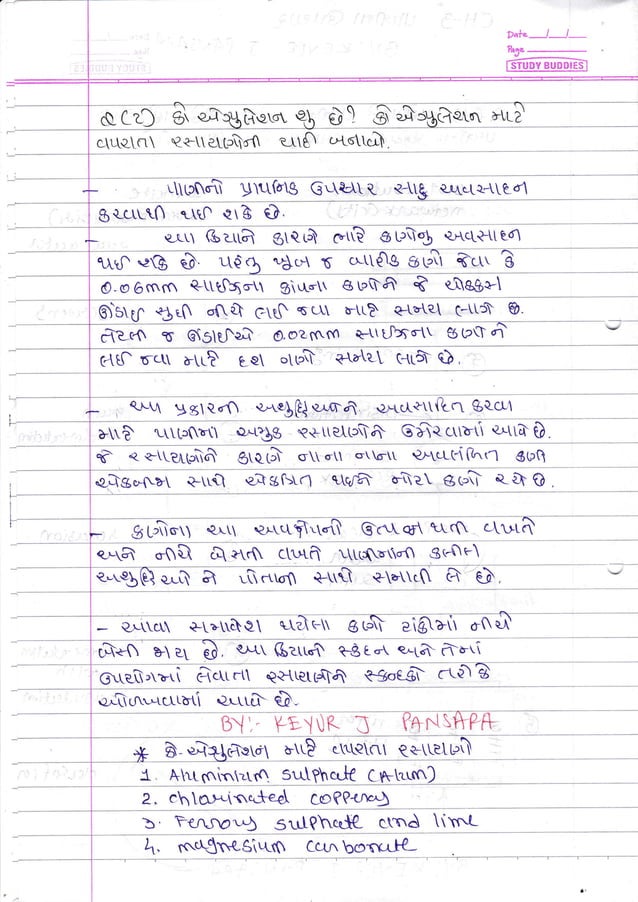 Date / /
Page
STUDY BUDDIES
૭(ટ) કો એગ્યુલેશન શુ છે? કો એગ્યુલેશન માટે
વપરાતા રસાયણોની યાદી બનાવો.
- પાણીનો પ્રાથમિક ઉપચાર સાદુ અવસાદન
કરવાથી થઈ શકે છે.
- આ ક્રિયાને કારણે ભારે કણોનુ અવસાદન
થઈ શકે છે. પરંતુ ખુબ જ બારીક કણો જેવા કે
0.06mm સાઈઝના કાંપના કણોને જે ચોક્કસ
ઊંડાઈ સુધી નીચે લઈ જવા માટે સમય લાગે છે.
તેટલી જ ઊંડાઈએ 0.02mm સાઈઝના કણોને
લઈ જવા માટે દશ ગણો સમય લાગે છે.
- આ પ્રકારની અશુદ્ધિઓને અવસાદિત કરવા
માટે પાણીમાં અમુક રસાયણોને ઉમેરવામાં આવે છે.
જે રસાયણોને કારણે નાના નાના અવલંબિત કણો
એકબીજા સાથે એકત્રિત થઈને મોટા કણો રચે છે.
- કણોના આ અવક્ષેપની ઉત્પન્ન થતી વખતે
અને નીચે બેસતી વખતે પાણીમાંની કલીલ
અશુદ્ધિઓ ને પોતાની સાથે સમાવી લે છે.
- આવા સમાવેશ થયેલા કણો ટાંકીમાં નીચે
બેસી જાય છે. આ ક્રિયાને સ્કંદન અને તેમાં
ઉપયોગમાં લેવાતા રસાયણોને સ્કંદકો તરીકે
ઓળખવામાં આવે છે.
BY:- KEYUR J PANSARA
* કો-એગ્યુલેશન માટે વપરાતા રસાયણો
1. Aluminium sulphate (Alum)
2. chlorinated copperas
3. Ferrous sulphate and lime
4. magnesium carbonate